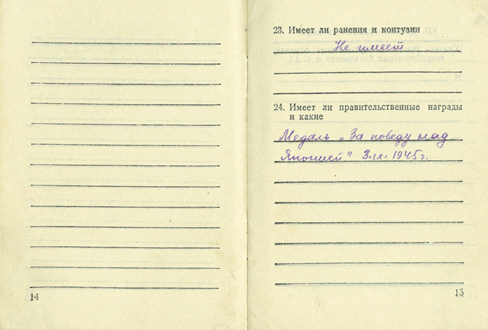 23. Имеет ли ранения и контузии
Не имеет
24. Имеет ли правительственные награды
и какие
Медаль „За победу над
Японией" 3.IX.1945г.
14
15